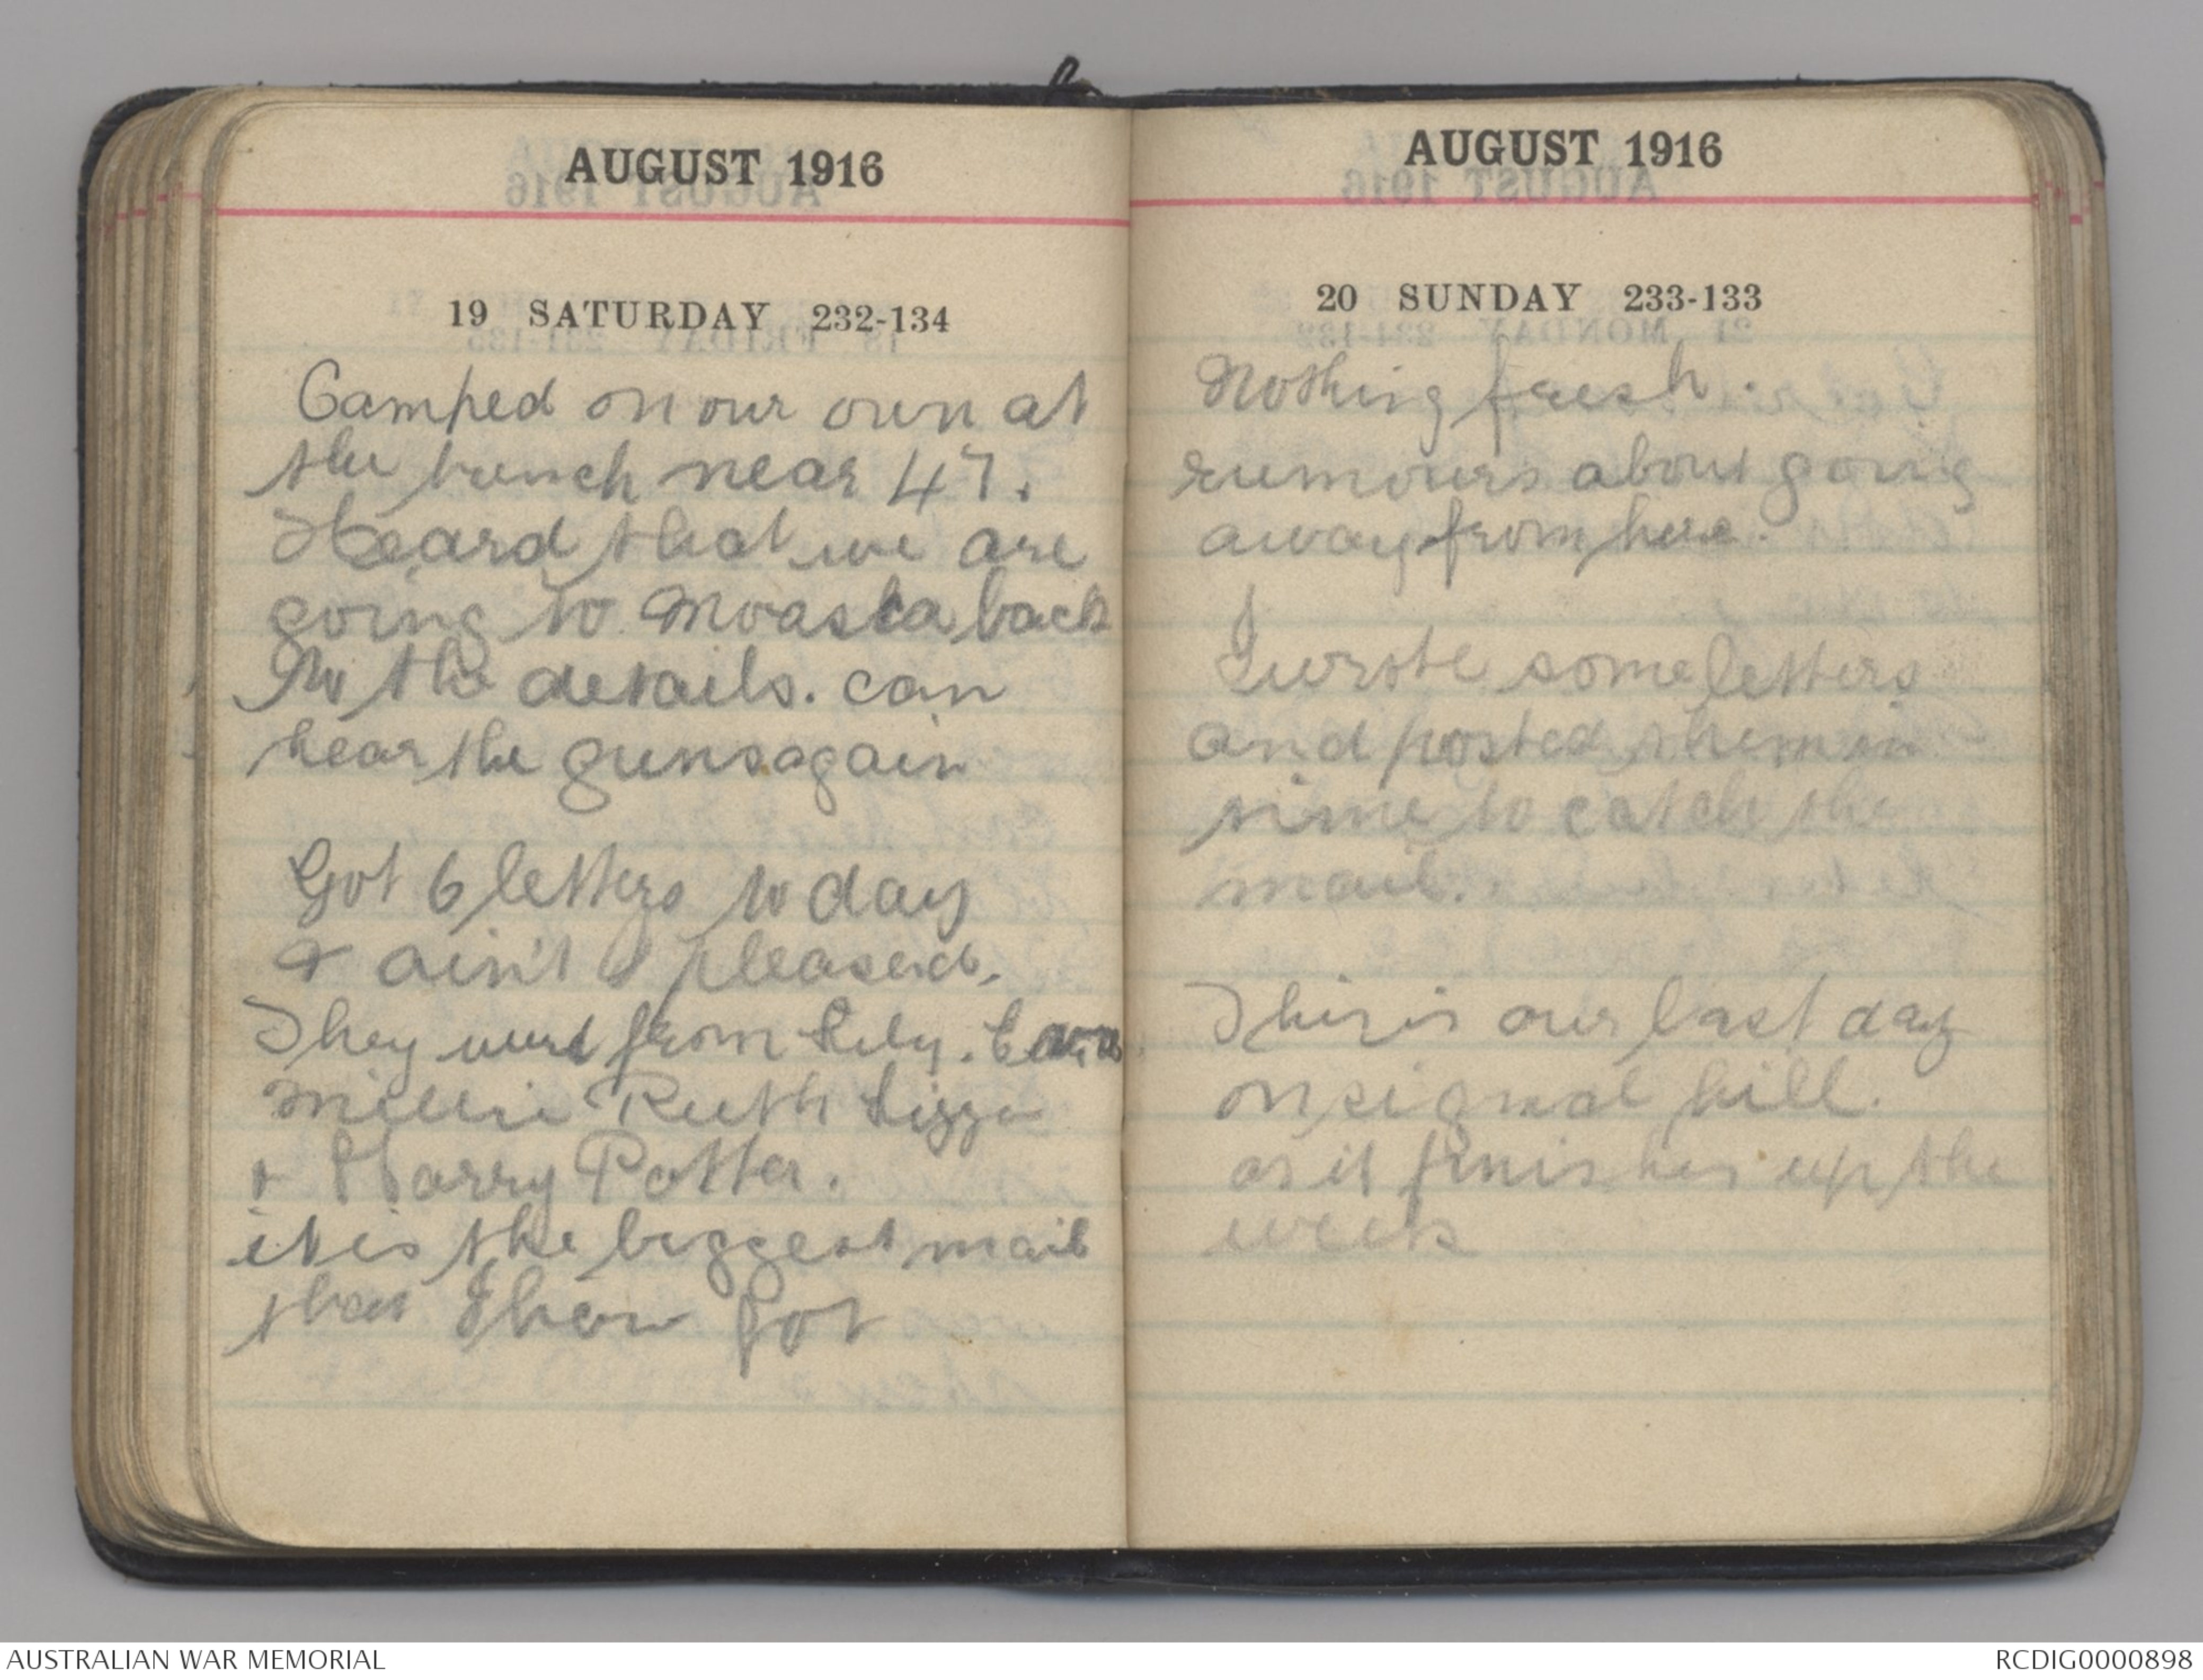 AUGUST 1916
19 SATURDAY 232-134
Camped on our own at
the trench near 47.
Heard that we are
going to Moasca back
to the details. can
hear the guns again
Got 6 letters to day
& ain't I pleased.
They were from Lily.
Millie Ruth Lizzie
& Harry Potter.
it is the biggest mail
that I have got
AUGUST 1916
20 SUNDAY 233-133
Nothing fresh.
rumours about going
away from here.
I wrote some letters
and posted them in
time to catch the
mail.
This is our last day
on signal hill.
as it finishes up the
week
AUSTRALIAN WAR MEMORIAL
RCDIG0000898